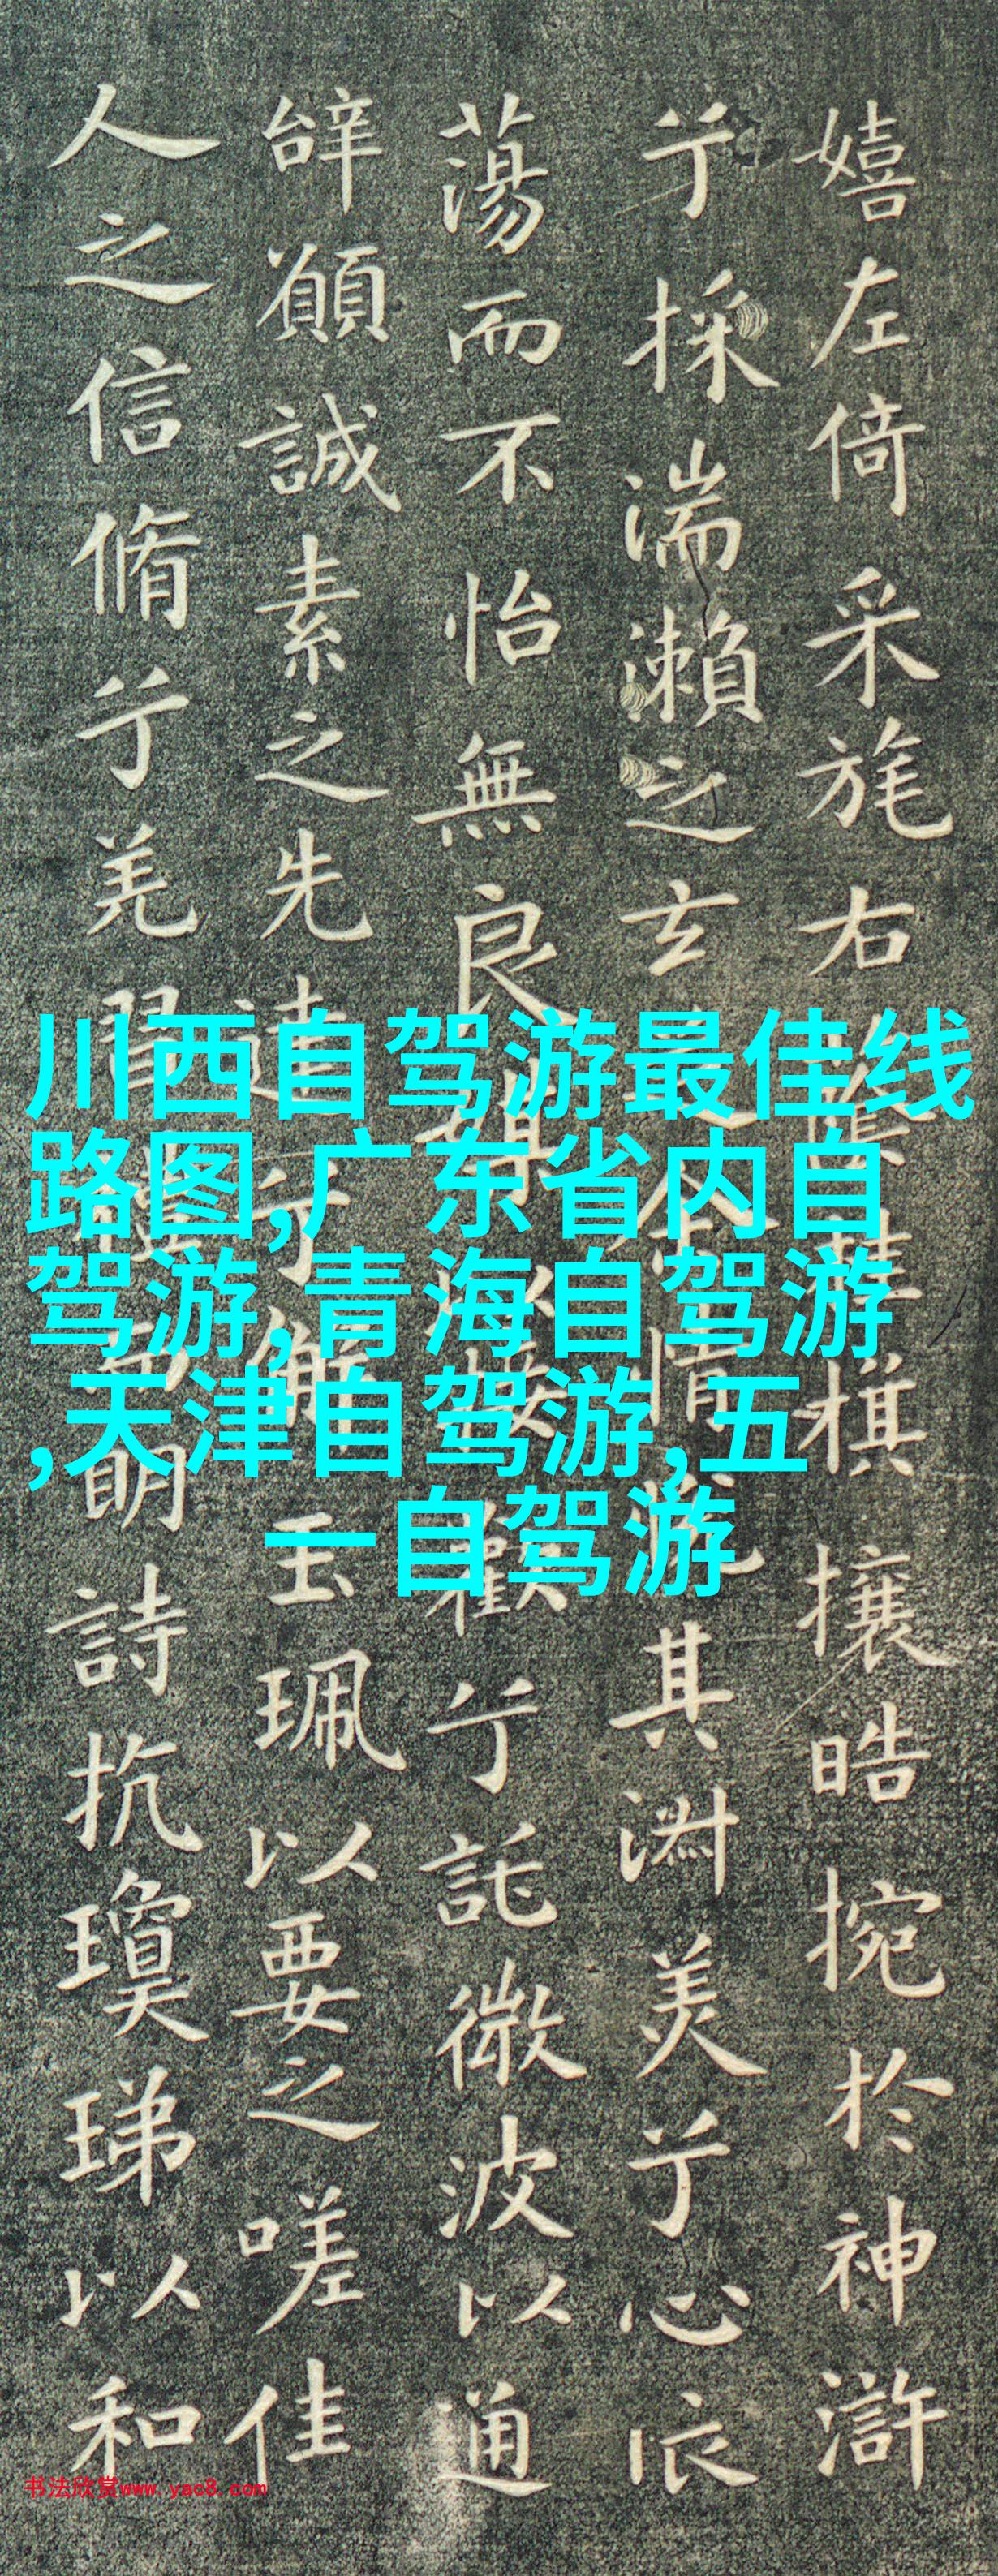 嬉左倚采旄右蔭桂棋攘皓捥於神滸
兮採湍瀨之玄芝余情悅其淑美兮心振
蕩而不怡無良媒以接歡兮託微波以通
辝願誠素之先達兮解玉珮以要之嗟佳
人之信脩兮羌習禮而明詩抗瓊珶以和
川西自驾游最佳线
路图,广东省内自
驾游,青海自驾游
,天津自驾游,五
一自驾游
书法欣赏www.yac8.com